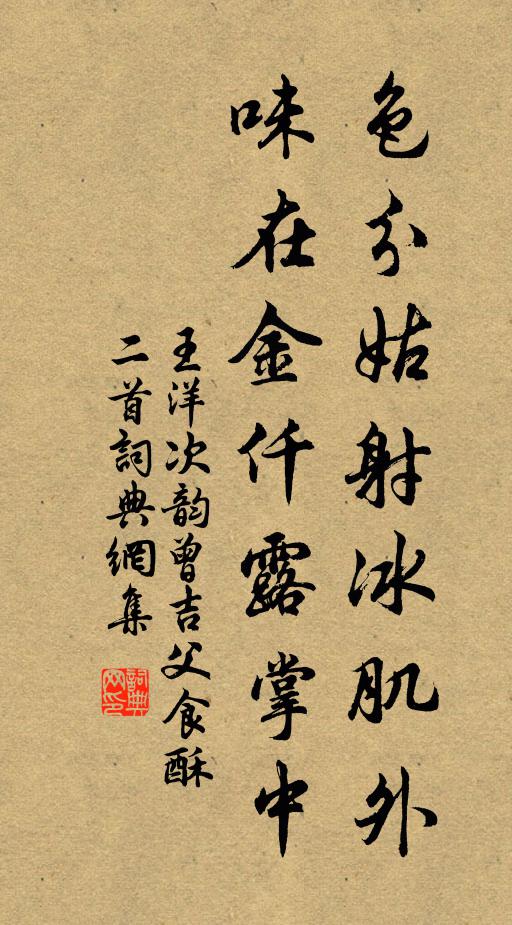 色分姑射冰肌外
味在金仟露掌中
王洋次韵曾吉父食酥
二首詞典網集
詞典网印